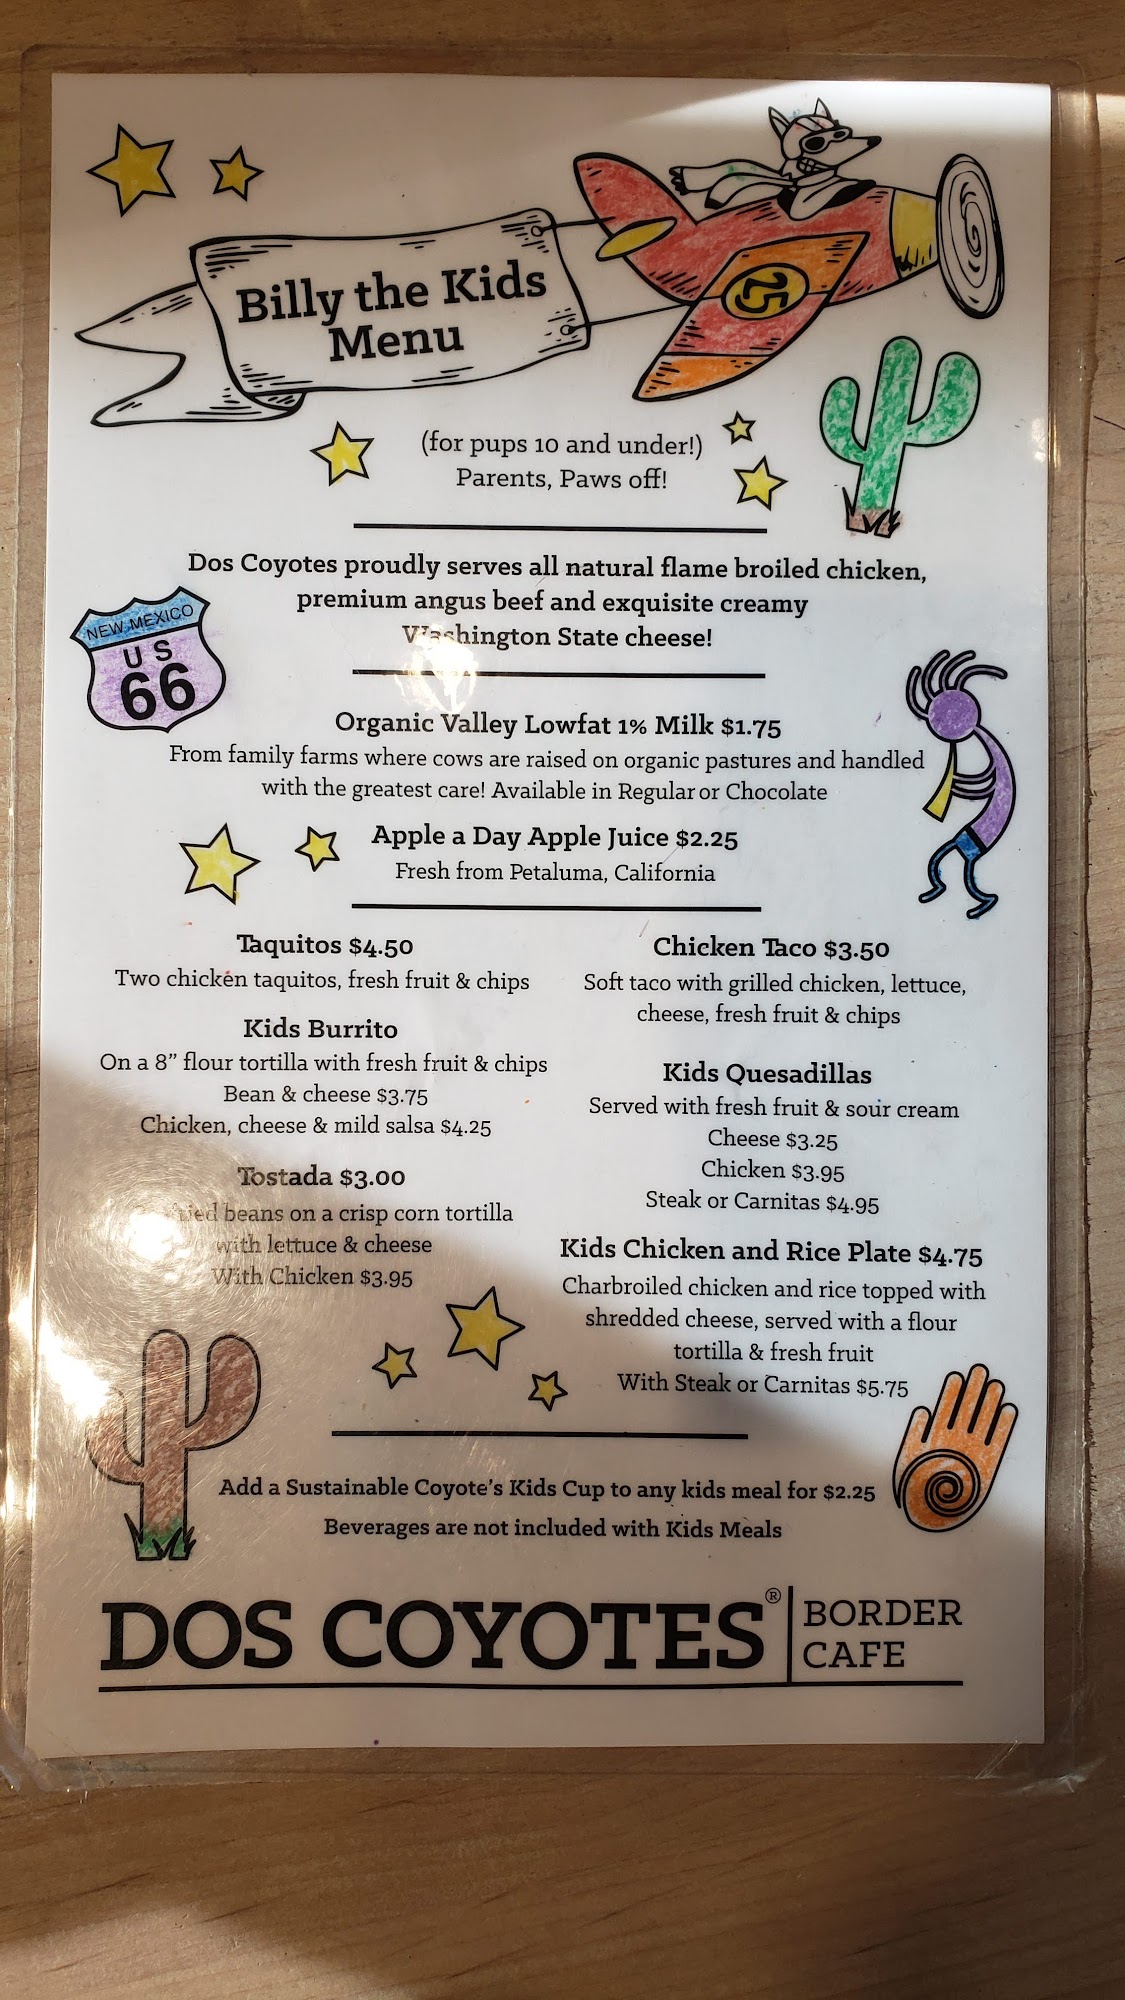 Billy the Kids
Menu
25
(for pups 10 and under!)
Parents, Paws off!
Dos Coyotes proudly serves all natural flame broiled chicken,
premium angus beef and exquisite creamy
Washington State cheese!
NEW MEXICO
US
66
Organic Valley Lowfat 1% Milk $1.75
From family farms where cows are raised on organic pastures and handled
with the greatest care! Available in Regular or Chocolate
Apple a Day Apple Juice $2.25
Fresh from Petaluma, California
Taquitos $4.50
Two chicken taquitos, fresh fruit & chips
Kids Burrito
On a 8" flour tortilla with fresh fruit & chips
Bean & cheese $3.75
Chicken, cheese & mild salsa $4.25
Tostada $3.00
beans on a crisp corn tortilla
with lettuce & cheese
With Chicken $3.95
Chicken Taco $3.50
Soft taco with grilled chicken, lettuce,
cheese, fresh fruit & chips
Kids Quesadillas
Served with fresh fruit & sour cream
Cheese $3.25
Chicken $3.95
Steak or Carnitas $4.95
Kids Chicken and Rice Plate $4.75
Charbroiled chicken and rice topped with
shredded cheese, served with a flour
tortilla & fresh fruit
With Steak or Carnitas $5.75
Add a Sustainable Coyote's Kids Cup to any kids meal for $2.25
Beverages are not included with Kids Meals
DOS COYOTES®
BORDER
CAFE